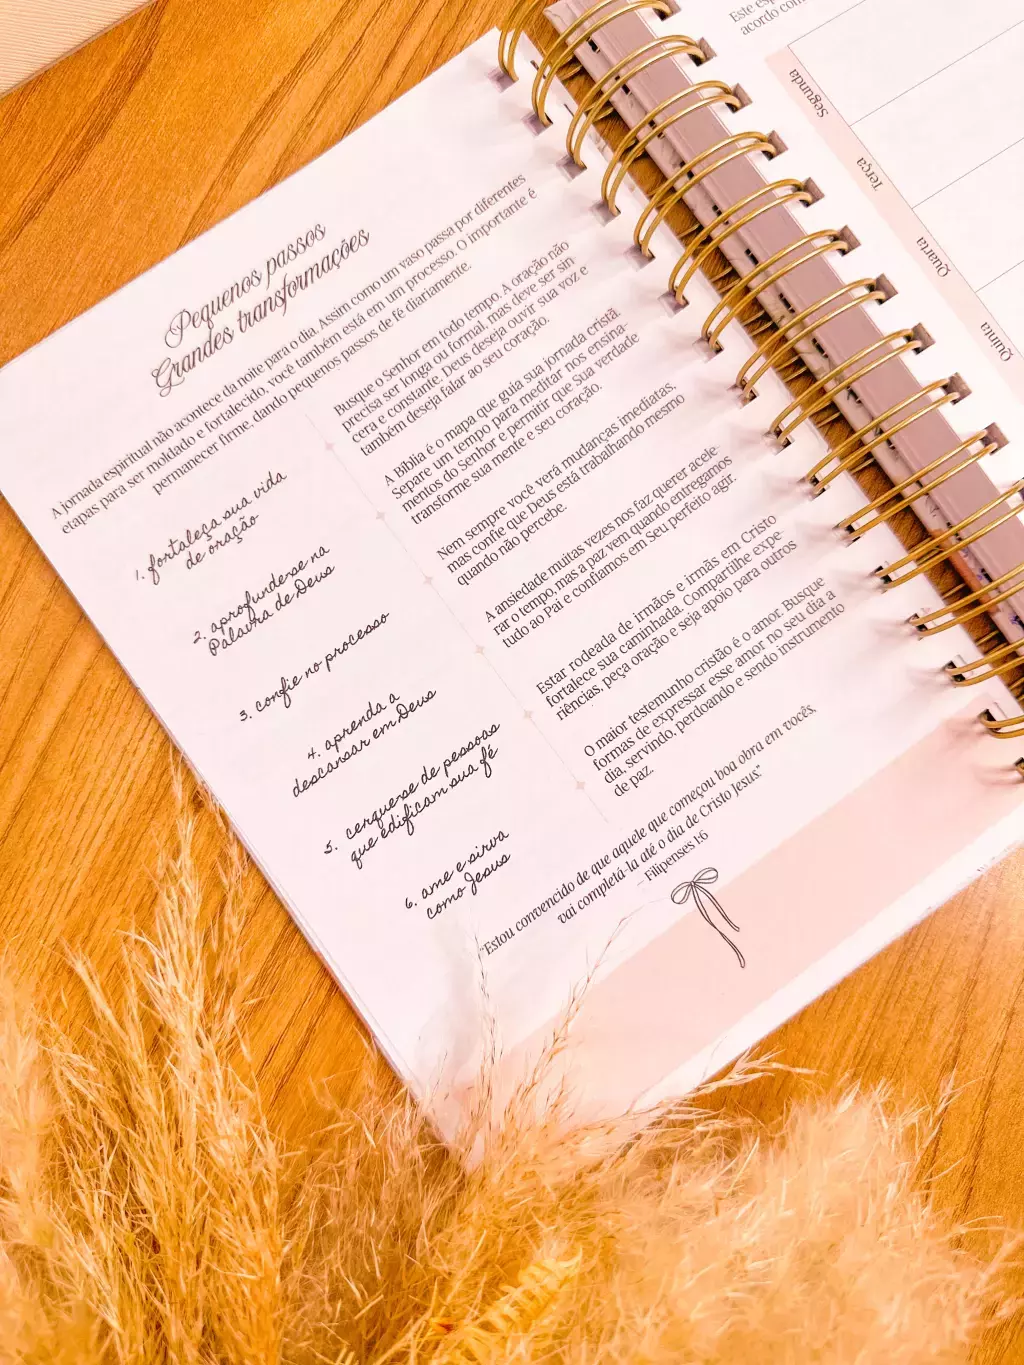 Pequenos passos
Grandes transformações
A jornada espiritual não acontece da noite para o dia. Assim como um vaso passa por diferentes
etapas para ser moldado e fortalecido, você também está em um processo. O importante é
permanecer firme, dando pequenos passos de fé diariamente.
1. fortaleça sua vida
de oração
Busque o Senhor em todo tempo. A oração não
precisa ser longa ou formal, mas deve ser sin-
cera e constante. Deus deseja ouvir sua voz e
também deseja falar ao seu coração.
2. aprofunde-se na
Palavra de Deus
A Bíblia é o mapa que guia sua jornada cristã.
Separe um tempo para meditar nos ensina-
mentos do Senhor e permitir que Sua verdade
transforme sua mente e seu coração.
3. confie no processo
Nem sempre você verá mudanças imediatas,
mas confie que Deus está trabalhando mesmo
quando não percebe.
4. aprenda a
descansar em Deus
A ansiedade muitas vezes nos faz querer acele-
rar o tempo, mas a paz vem quando entregamos
tudo ao Pai e confiamos em Seu perfeito agir.
5. cerque-se de pessoas
que edificam sua fé
Estar rodeada de irmãos e irmãs em Cristo
fortalece sua caminhada. Compartilhe expe-
riências, peça oração e seja apoio para outros
6. ame e sirva
como Jesus
O maior testemunho cristão é o amor. Busque
formas de expressar esse amor no seu dia a
dia, servindo, perdoando e sendo instrumento
de paz.
"Estou convencido de que aquele que começou boa obra em vocês,
vai completá-la até o dia de Cristo Jesus."
– Filipenses 1:6
Este
acordo com
Segunda
Terça
Quarta
Quinta